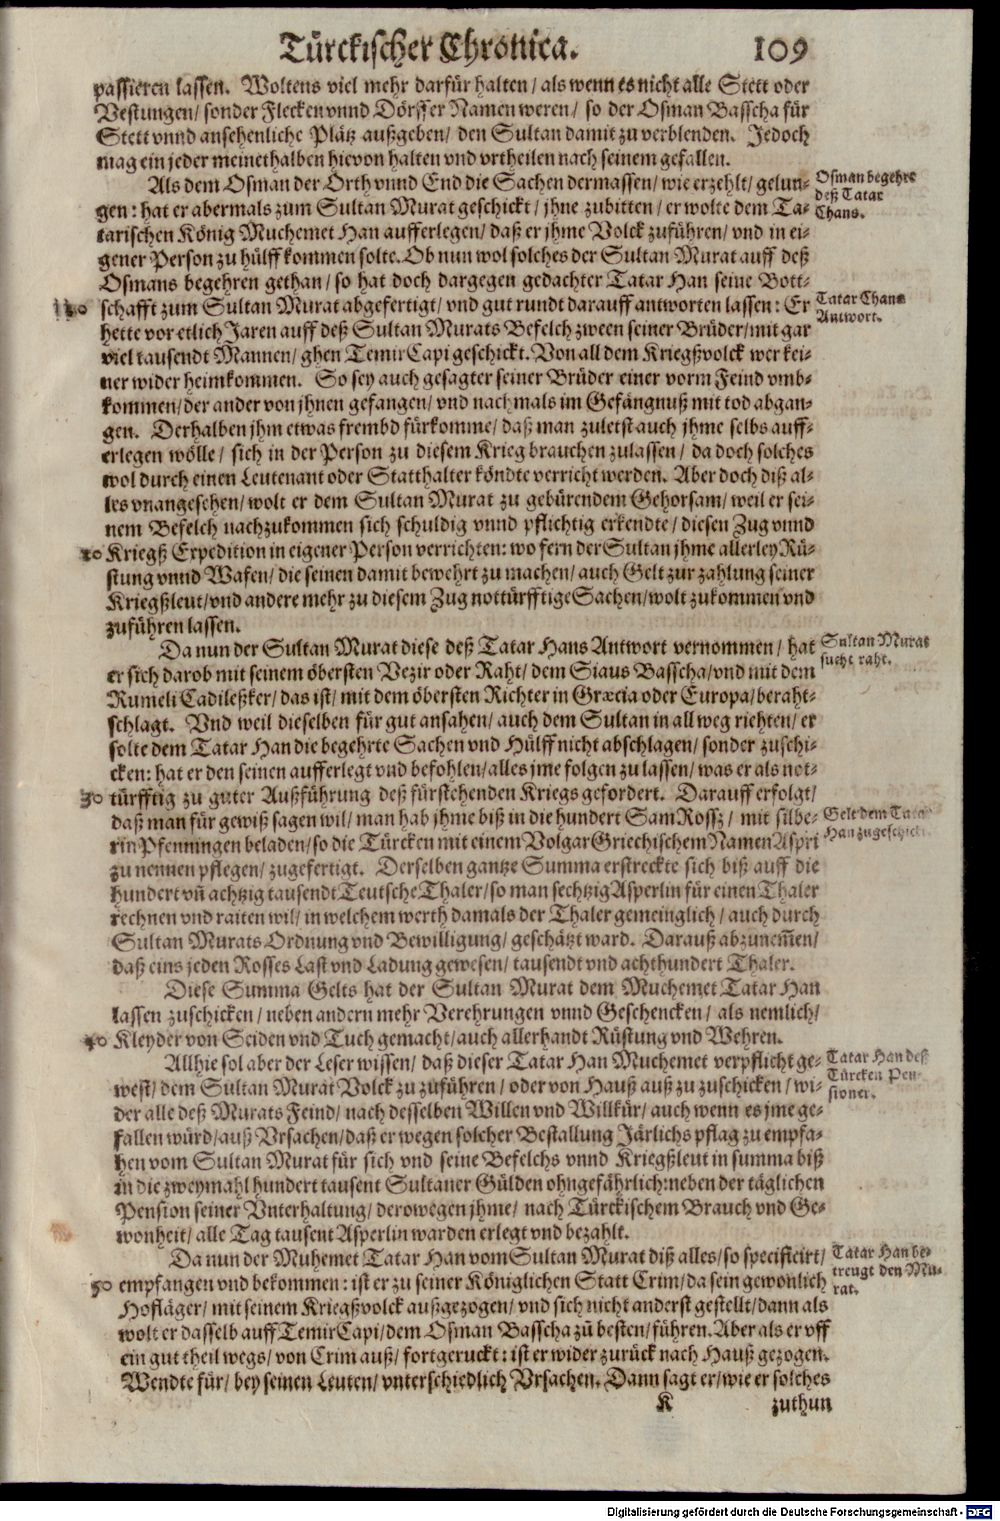 Türckischer Chronica. 109
passieren lassen. Woltens viel mehr darfür halten/ als wenn es nicht alle Stett oder
Vestungen/ sonder Flecken vnnd Dörffer Namen weren/ so der Osman Basscha für
Stett vnnd ansehenliche Plätz außgeben/ den Sultan damit zu verblenden. Jedoch
mag ein jeder meinethalben hievon halten vnd vrtheilen nach seinem gefallen.
Als dem Osman der Orth vnnd End die Sachen dermassen/ wie erzehlt/ gelun-
gen: hat er abermals zum Sultan Murat geschickt/ jhne zubitten/ er wolte dem Ta-
tarischen König Muchemet Han aufferlegen/ daß er jhme Volck zuführen/ vnd in ei-
gener Person zu hülff kommen solte. Ob nun wol solches der Sultan Murat auff deß
Osmans begehren gethan/ so hat doch dargegen gedachter Tatar Han seine Bott-
schafft zum Sultan Murat abgefertigt/ vnd gut rundt darauff antworten lassen: Er
hette vor etlich Jaren auff deß Sultan Murats Befelch zween seiner Brüder/ mit gar
viel tausendt Mannen/ ghen Temir Capi geschickt. Von all dem Kriegßvolck wer kei-
ner wider heimkommen. So sey auch gesagter seiner Brüder einer vorm Feind vmb-
kommen/ der ander von jhnen gefangen/ vnd nachmals im Gefängnuß mit tod abgan-
gen. Derhalben jhm etwas frembd fürkomme/ daß man zuletst auch jhme selbs auff-
erlegen wölle/ sich in der Person zu diesem Krieg brauchen zulassen/ da doch solches
wol durch einen Leutenant oder Statthalter köndte verricht werden. Aber doch diß al-
les vnangesehen/ wolt er dem Sultan Murat zu gebürendem Gehorsam/ weil er sei-
nem Befelch nachzukommen sich schuldig vnnd pflichtig erkendte/ diesen Zug vnnd
20 Kriegß Expedition in eigener Person verrichten: wo fern der Sultan jhme allerley Rü-
stung vnnd Wafen/ die seinen damit bewehrt zu machen/ auch Gelt zur zahlung seiner
Kriegßleut/ vnd andere mehr zu diesem Zug nottürfftige Sachen/ wolt zukommen vnd
zuführen lassen.
Da nun der Sultan Murat diese deß Tatar Hans Antwort vernommen/ hat
er sich darob mit seinem öbersten Vezir oder Raht/ dem Siaus Basscha/ vnd mit dem
Rumeli Cadileßker/ das ist/ mit dem öbersten Richter in Græcia oder Europa/ beraht-
schlagt. Vnd weil dieselben für gut ansahen/ auch dem Sultan in all weg riehten/ er
solte dem Tatar Han die begehrte Sachen vnd Hülff nicht abschlagen/ sonder zuschi-
cken: hat er den seinen aufferlegt vnd befohlen/ alles jme folgen zu lassen/ was er als not-
30 türfftig zu guter Außführung deß fürstehenden Kriegs gefordert. Darauff erfolgt/
daß man für gewiß sagen wil/ man hab jhme biß in die hundert Sam Rossz/ mit silbe-
rin Pfenningen beladen/ so die Türcken mit einem Volgar Griechischem Namen Aspri
zu nennen pflegen/ zugefertigt. Derselben gantze Summa erstreckte sich biß auff die
hundert vñ achtzig tausendt Teutsche Thaler/ so man sechtzig Asperlin für einen Thaler
rechnen vnd raiten wil/ in welchem werth damals der Thaler gemeinglich/ auch durch
Sultan Murats Ordnung vnd Bewilligung/ geschätzt ward. Darauß abzunem̃en/
daß eins jeden Rosses Last vnd Ladung gewesen/ tausendt vnd achthundert Thaler.
Diese Summa Gelts hat der Sultan Murat dem Muchemet Tatar Han
lassen zuschicken/ neben andern mehr Verehrungen vnnd Geschencken/ als nemlich/
40 Kleyder von Seiden vnd Tuch gemacht/ auch allerhandt Rüstung vnd Wehren.
Allhie sol aber der Leser wissen/ daß dieser Tatar Han Muchemet verpflicht ge-
west/ dem Sultan Murat Volck zu zuführen/ oder von Hauß auß zu zuschicken/ wi-
der alle deß Murats Feind/ nach desselben Willen vnd Willkür/ auch wenn es jme ge-
fallen würd/ auß Vrsachen/ daß er wegen solcher Bestallung Järlichs pflag zu empfa-
hen vom Sultan Murat für sich vnd seine Befelchs vnnd Kriegßleut in summa biß
in die zweymahl hundert tausent Sultaner Gülden ohngefährlich: neben der täglichen
Pension seiner Vnterhaltung/ derowegen jhme/ nach Türckischem Brauch vnd Ge-
wonheit/ alle Tag tausent Asperlin warden erlegt vnd bezahlt.
Da nun der Muhemet Tatar Han vom Sultan Murat diß alles/ so specificirt/
50 empfangen vnd bekommen: ist er zu seiner Königlichen Statt Crim/ da sein gewonlich
Hofläger/ mit seinem Kriegßvolck außgezogen/ vnd sich nicht anderst gestellt/ dann als
wolt er dasselb auff Temir Capi/ dem Osman Basscha zu besten/ führen. Aber als er vff
ein gut theil wegs/ von Crim auß/ fortgeruckt: ist er wider zurück nach Hauß gezogen.
Wendte für/ bey seinen Leuten/ vnterschiedlich Vrsachen. Dann sagt er/ wie er solches
K zuthun
Osman begehre
deß Tatar
Chans.
Tatar Chans
Antwort.
Sultan Murat
sucht raht.
Gelt dem Tatar
Han zugeschickt
Tatar Han deß
Türcken Pen-
sioner.
Tatar Han be-
treugt den Mu-
rat.
Digitalisierung gefördert durch die Deutsche Forschungsgemeinschaft - DFG